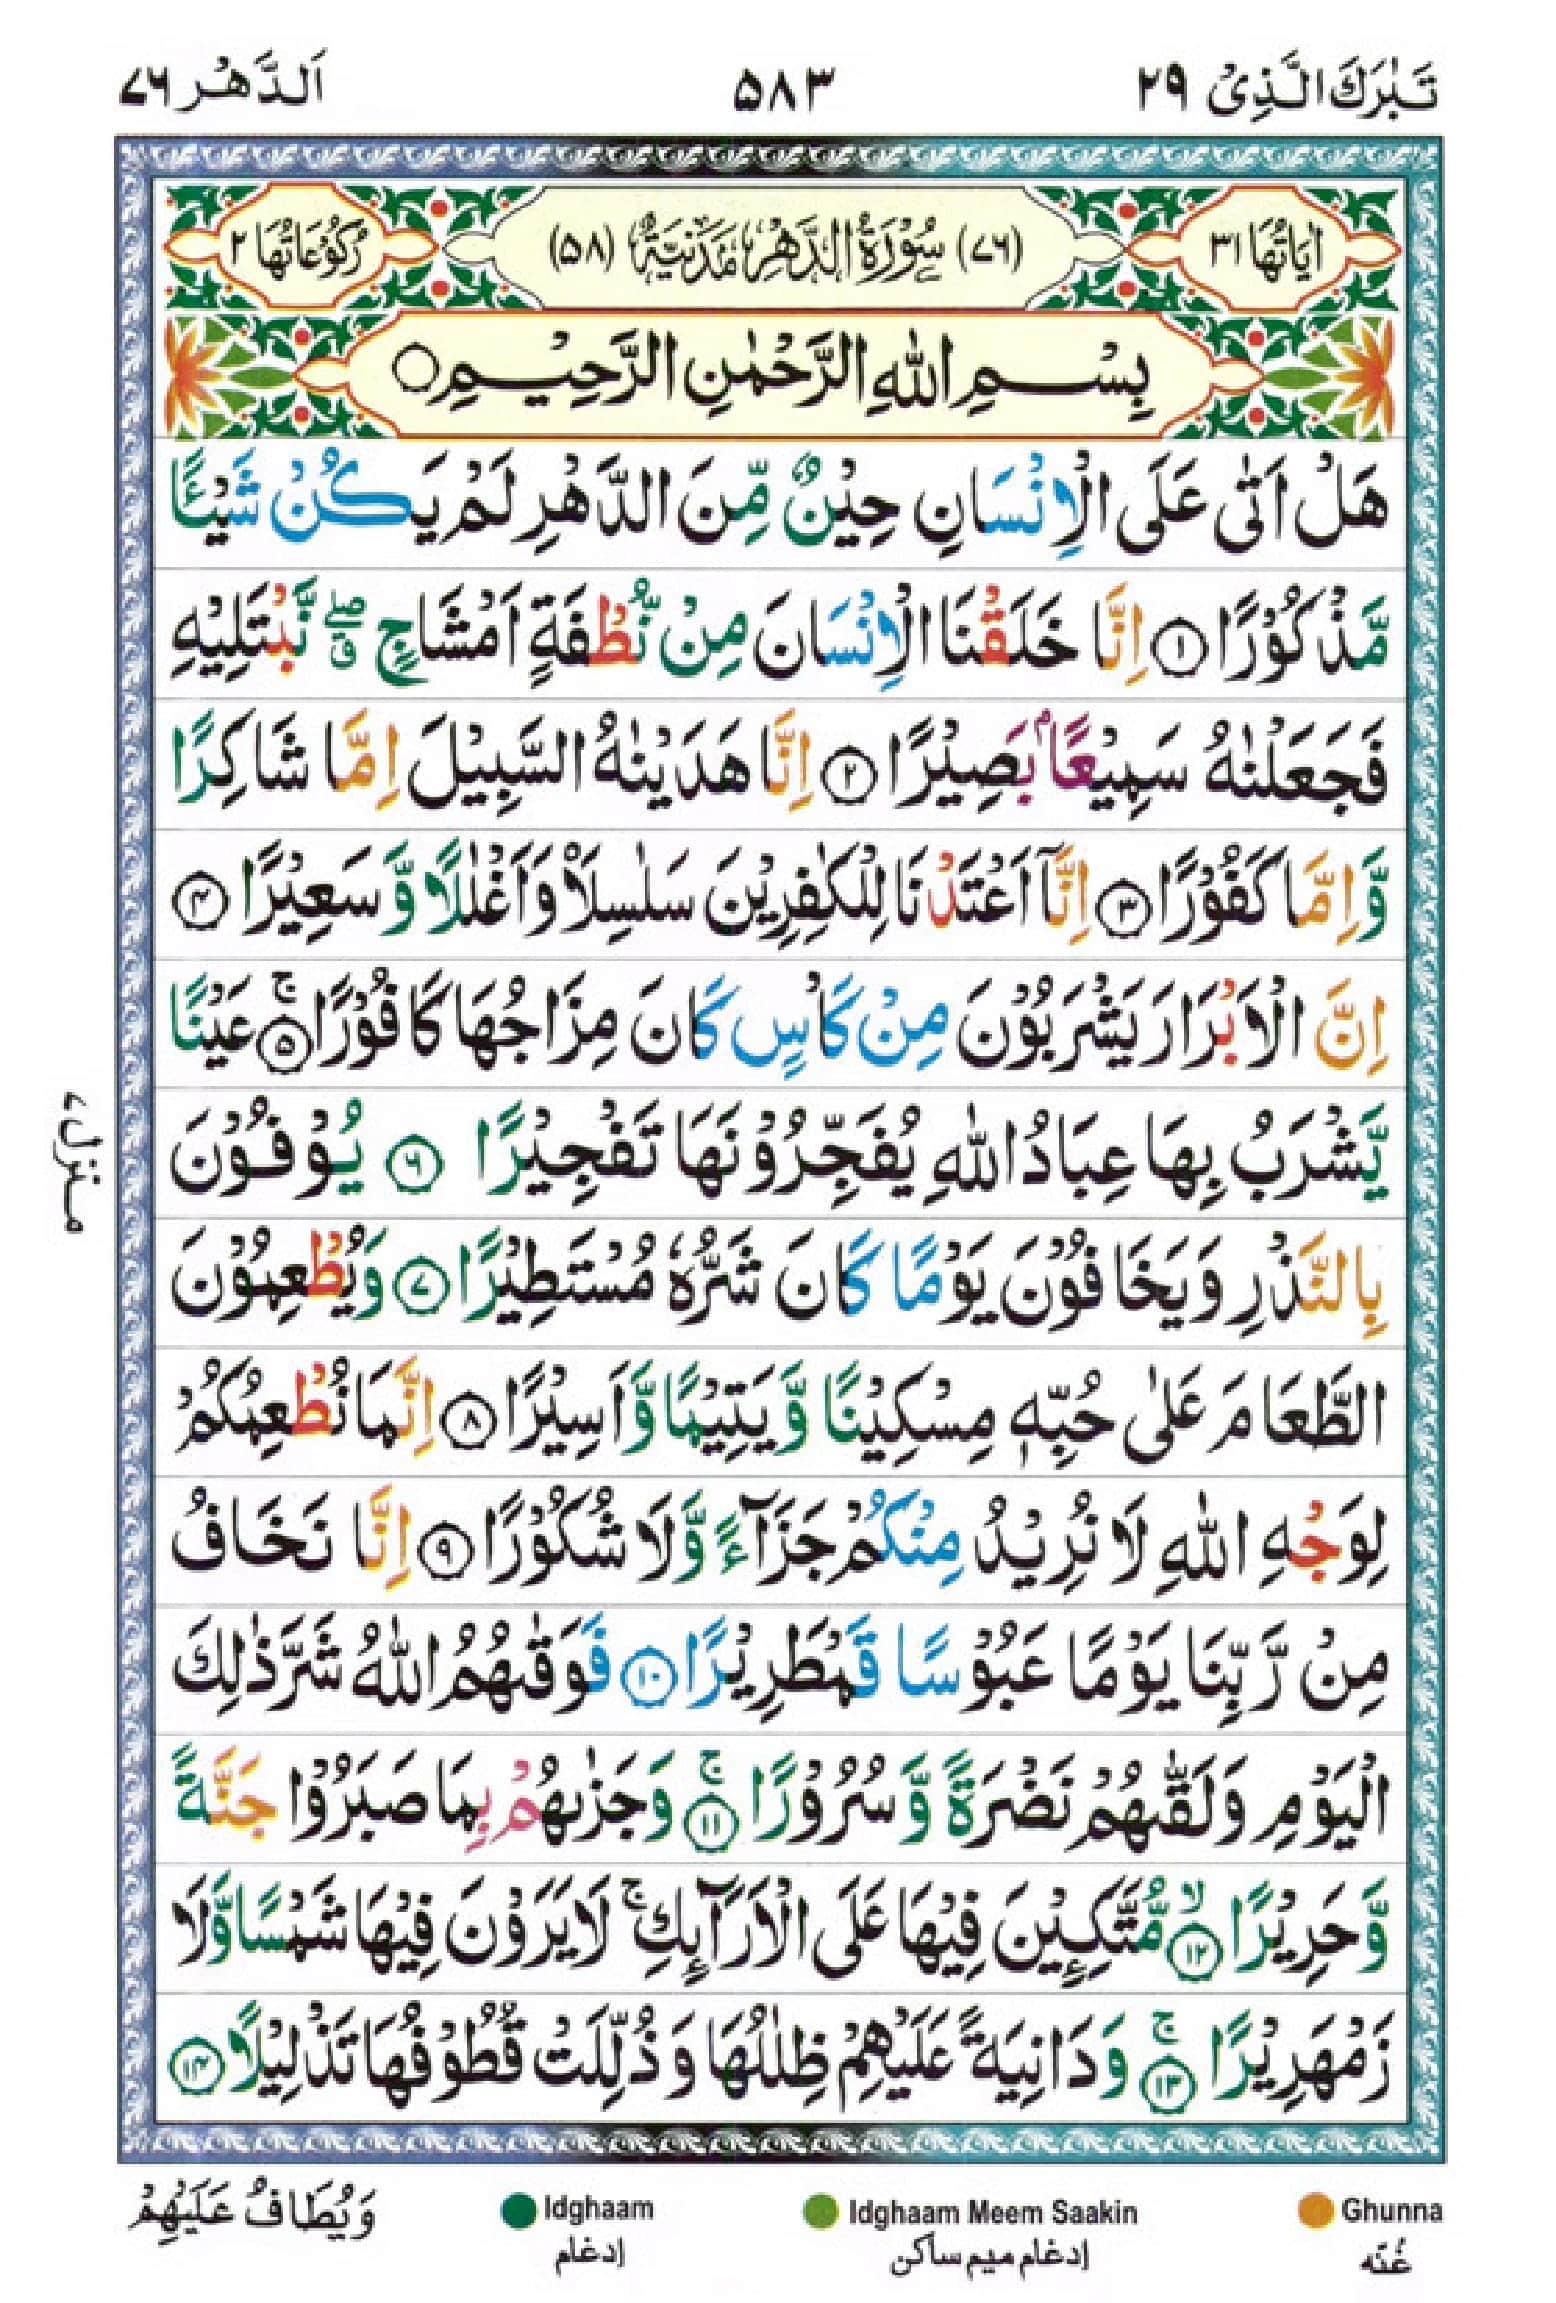 تَبٰرَكَ الَّذِىْ ٢٩
٥٨٣
اَلدَّهْر ٧٦
اٰيَاتُهَا ٣١
(٧٦) سُوْرَةُ الدَّهْرِ مَدَنِيَّةٌ (٥٨)
رُكُوْعَاتُهَا ٢
بِسْمِ اللهِ الرَّحْمٰنِ الرَّحِيْمِ ○
هَلْ اَتٰى عَلَى الْاِنْسَانِ حِيْنٌ مِّنَ الدَّهْرِ لَمْ يَكُنْ شَيْـًٔا
مَّذْكُوْرًا ١ اِنَّا خَلَقْنَا الْاِنْسَانَ مِنْ نُّطْفَةٍ اَمْشَاجٍ ۖق نَّبْتَلِيْهِ
فَجَعَلْنٰهُ سَمِيْعًاۢ بَصِيْرًا ٢ اِنَّا هَدَيْنٰهُ السَّبِيْلَ اِمَّا شَاكِرًا
وَّاِمَّا كَفُوْرًا ٣ اِنَّاۤ اَعْتَدْنَا لِلْكٰفِرِيْنَ سَلٰسِلَا۟ وَاَغْلٰلًا وَّسَعِيْرًا ٤
اِنَّ الْاَبْرَارَ يَشْرَبُوْنَ مِنْ كَاْسٍ كَانَ مِزَاجُهَا كَافُوْرًا ۚ ٥ عَيْنًا
يَّشْرَبُ بِهَا عِبَادُ اللهِ يُفَجِّرُوْنَهَا تَفْجِيْرًا ٦ يُوْفُوْنَ
بِالنَّذْرِ وَيَخَافُوْنَ يَوْمًا كَانَ شَرُّهٗ مُسْتَطِيْرًا ٧ وَيُطْعِمُوْنَ
الطَّعَامَ عَلٰى حُبِّهٖ مِسْكِيْنًا وَّيَتِيْمًا وَّاَسِيْرًا ٨ اِنَّمَا نُطْعِمُكُمْ
لِوَجْهِ اللهِ لَا نُرِيْدُ مِنْكُمْ جَزَآءً وَّلَا شُكُوْرًا ٩ اِنَّا نَخَافُ
مِنْ رَّبِّنَا يَوْمًا عَبُوْسًا قَمْطَرِيْرًا ١٠ فَوَقٰىهُمُ اللهُ شَرَّ ذٰلِكَ
الْيَوْمِ وَلَقّٰىهُمْ نَضْرَةً وَّسُرُوْرًا ۚ ١١ وَجَزٰىهُمْ بِمَا صَبَرُوْا جَنَّةً
وَّحَرِيْرًا ۙ ١٢ مُّتَّكِـِٕيْنَ فِيْهَا عَلَى الْاَرَآىِٕكِ ۚ لَا يَرَوْنَ فِيْهَا شَمْسًا وَّلَا
زَمْهَرِيْرًا ۚ ١٣ وَدَانِيَةً عَلَيْهِمْ ظِلٰلُهَا وَذُلِّلَتْ قُطُوْفُهَا تَذْلِيْلًا ١٤
منزل ٧
وَيُطَافُ عَلَيْهِمْ
Idghaam
إدغام
Idghaam Meem Saakin
إدغام ميم ساكن
Ghunna
غُنّه